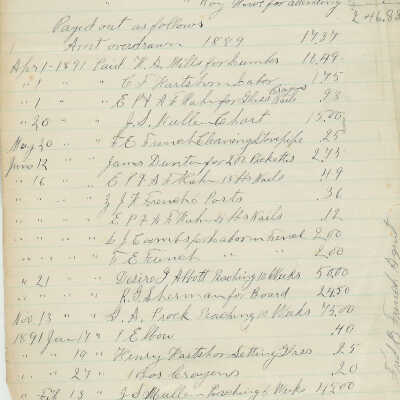 Roy Howe for
246.83
Payed out as follows
Amt overdrawn 1889 17.37
Apr 1 - 1891 Paid W. S. Mills for lumber 11.49
" 1 " C F Hartshorn Labor 1.75
" 1 " E P & A F Hahn for Glass & Nails .93
" 20 " J. S. Mullen Chart 15.00
May 20 " F. E. French Cleaning Stovepipe 25
June 12 " James Dunton for 202 Picketts 2.75
" 16 " E P & A F Hahn 15 lbs Nails .49
" " " J. F. French Posts .36
" " " E P & A F Hahn 4 lbs Nails .12
" " " for labor on Fence 2.00
" " " F E French " " 2.00
" 21 " Desire J Abbott Teaching 10 Weeks 50.00
" " " R. F. Sherman for Board 24.50
Nov 13 " S. A. Prock Teaching 10 Weeks 75.00
1891 Jan 17 " 1 Elbow .40
" " 19 " Henry Hartshorn Setting Glass .25
" " 27 " 1 Box Crayons .20
" Feb 13 " J. S. Mullen Teaching 6 Weeks 45.00
French Agent